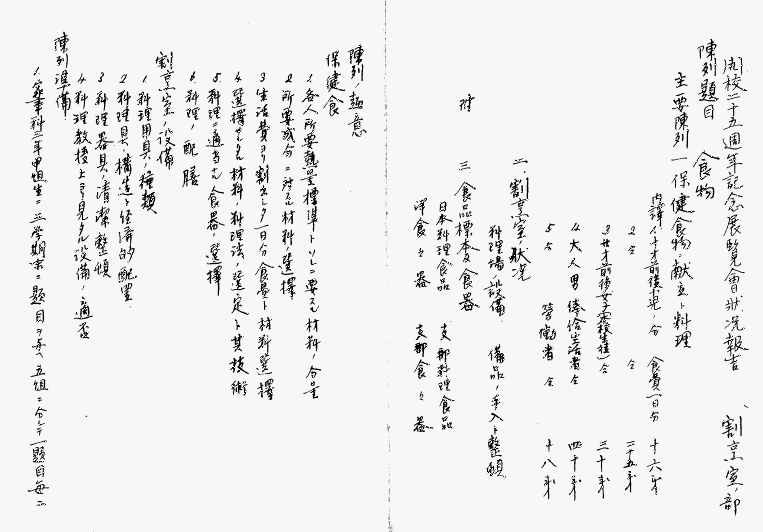 開校二十五週年記念展覧會状况報告　割烹室ノ部
陳列題目　食物
主要陳列　一　保健食物ノ献立ト料理
内譯　1 十才前後小児ノ分　食費一日分　十六銭
2 仝　仝　二十五銭
3 廿才前後女子（寄宿生徒）仝　三十銭
4 大人男　俸給生活者仝　四十銭
5 仝　労働者　仝　十八銭
二、割烹室ノ状况
料理場ノ設備　備品ノ手入ト整頓
附　三　食品標本及食器
日本料理食品　支那料理食品
洋食〃器　支那食〃器
陳列ノ趣意
保健食
1 各人所要熱量標準トソレニ要スル材料ノ分量
2 所要成分ニ対スル材料ノ選擇
3 生活費ヨリ割出シタル一日分食量ト材料選擇
4 選擇サレタル材料ノ料理法ノ選定ト其技術
5 料理ニ適当ナル食器ノ選擇
6 料理ノ配膳
割烹室ノ設備
1 料理用具ノ種類
2 料理具ノ構造ト経済的配置
3 料理器具ノ清潔整頓
4 料理教授上ヨリ見タル設備ノ適否
陳列準備
1、家事科三年甲組生ニ三学期末ニ題目ヲ与ヘ五組ニ分レテ一題目毎ニ